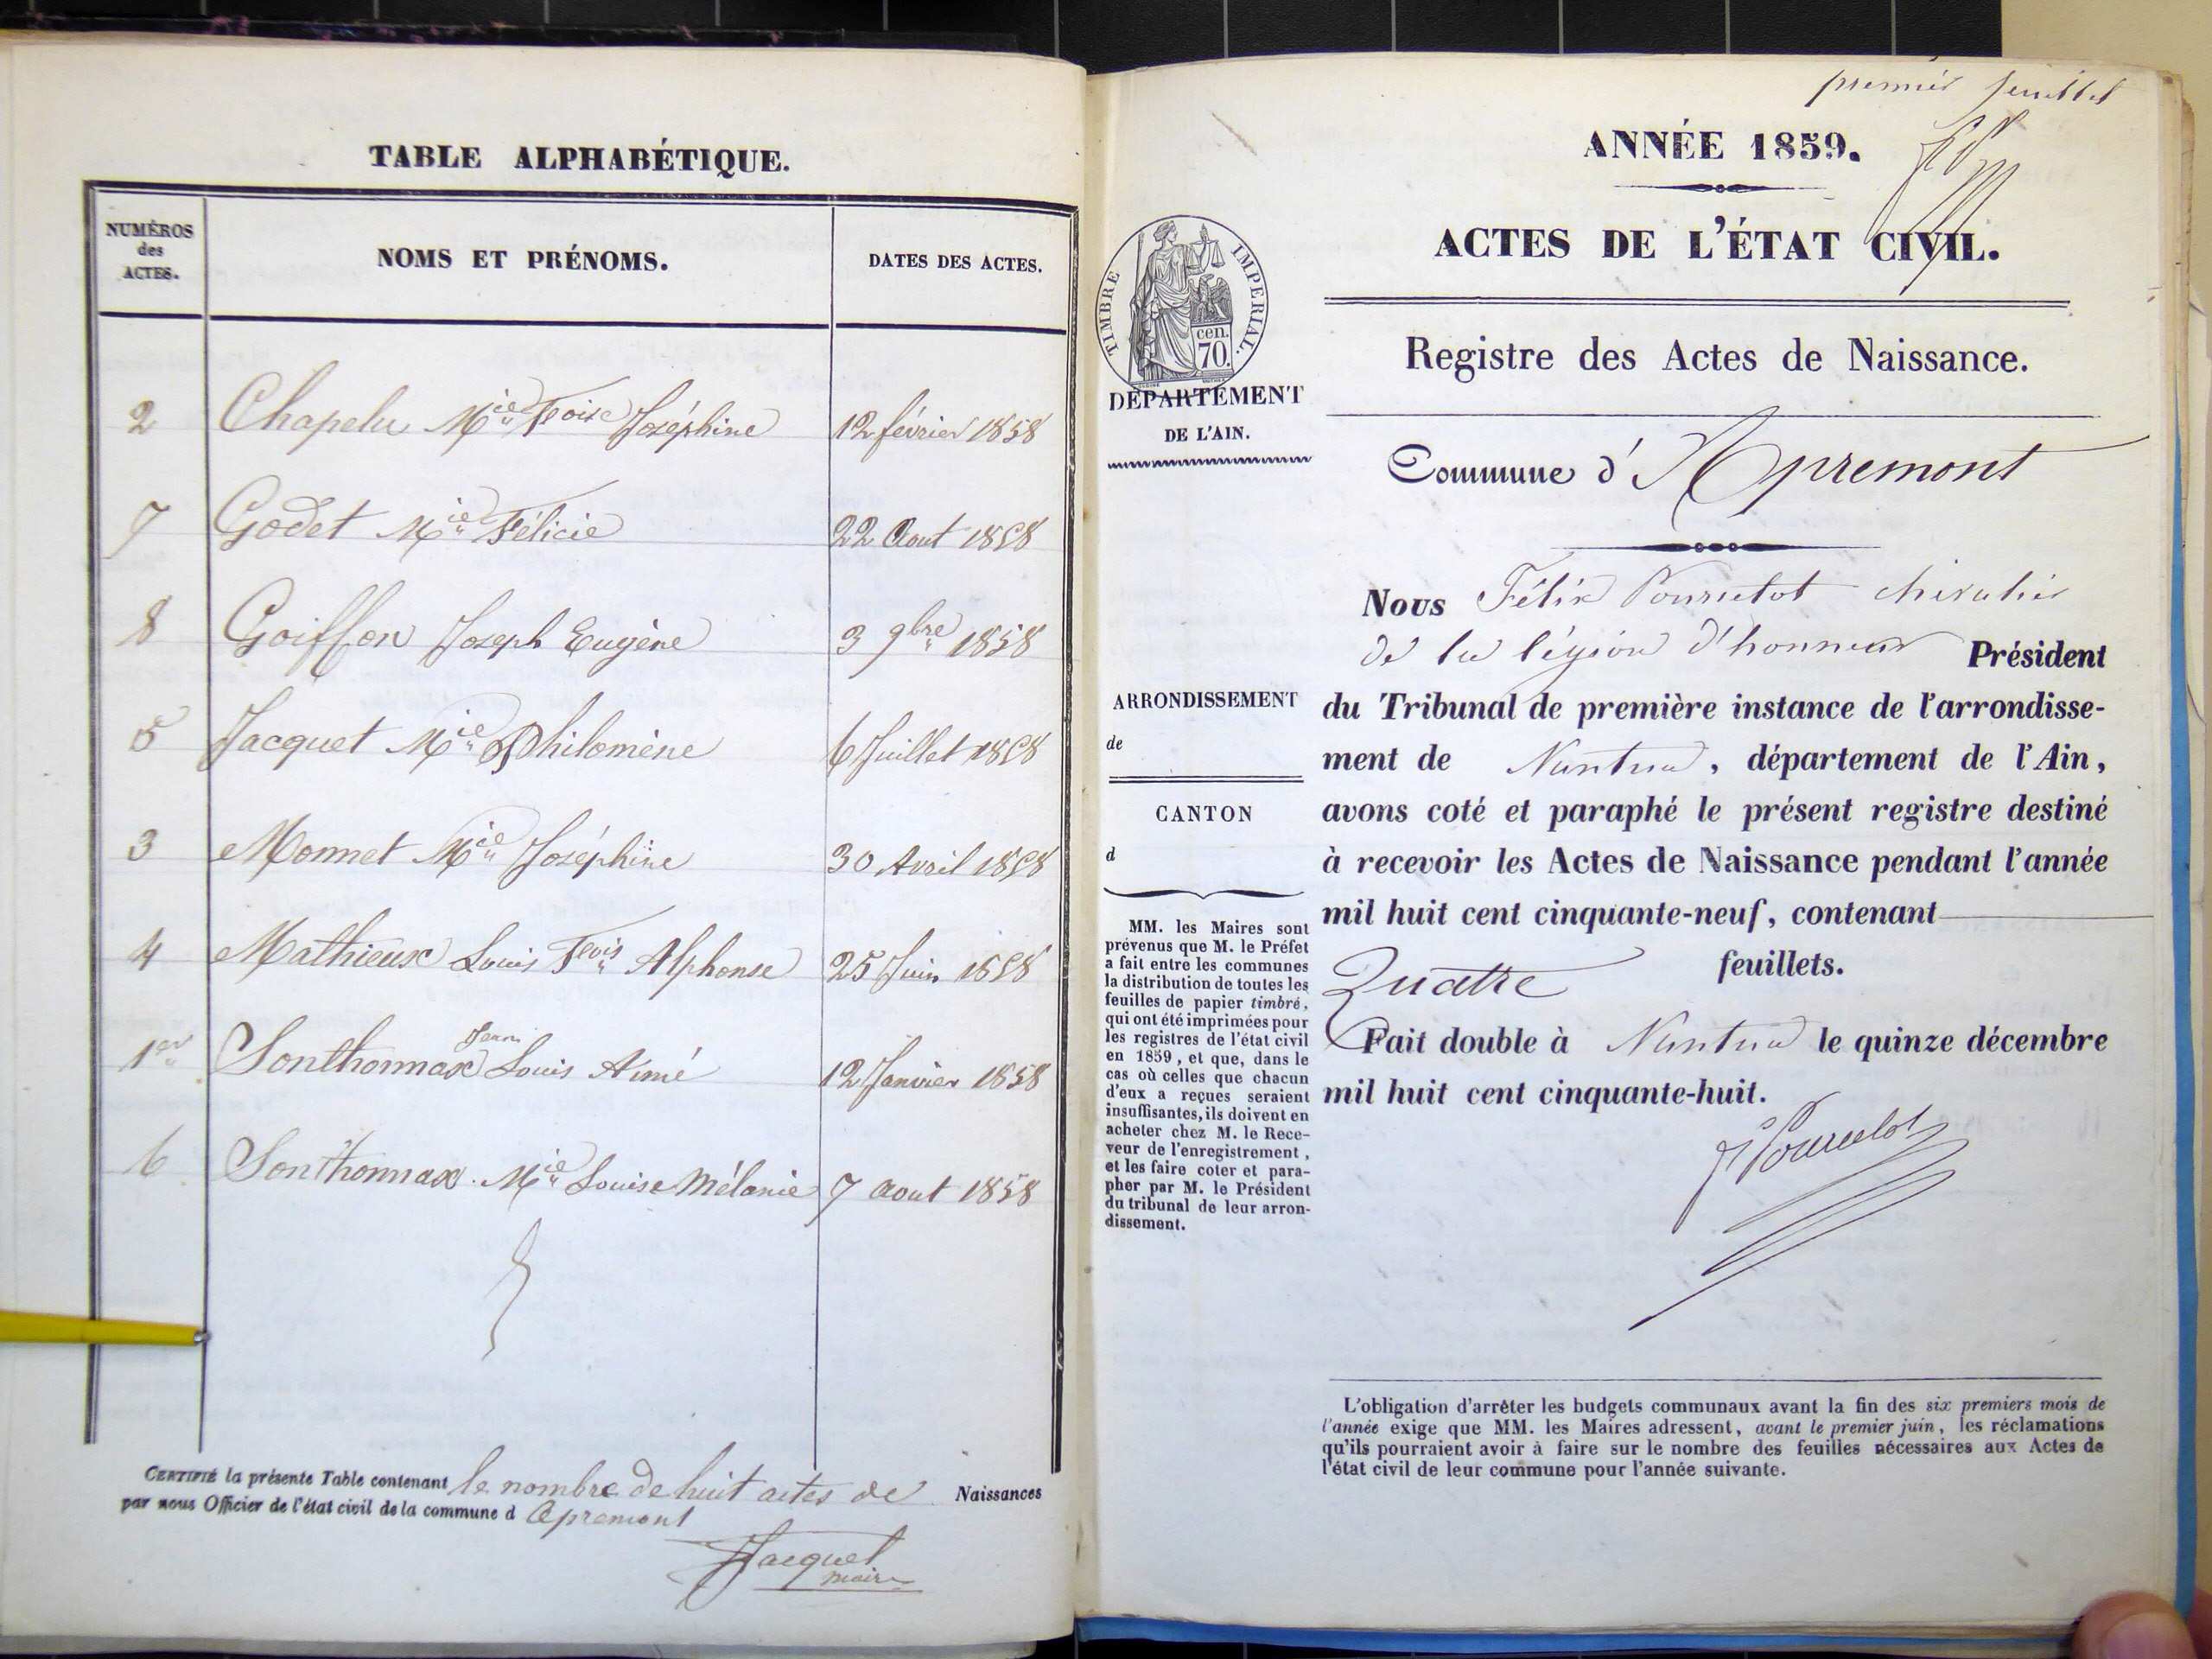 TABLE ALPHABÉTIQUE.
NUMÉROS
des
ACTES.
NOMS ET PRÉNOMS.
DATES DES ACTES.
2 Chapelu Mie Foise Joséphine 12 février 1858
7 Godet Mie Félicie 22 Aout 1858
8 Goiffon Joseph Eugène 3 9bre 1858
5 Jacquet Mie Philomène 6 Juillet 1858
3 Monnet Mie Joséphine 30 Avril 1858
4 Mathieux Louis Fois Alphonse 25 Juin 1858
Jean
1er Sonthonnax Louis Aimé 12 Janvier 1858
6 Sonthonnax Mie Louise Mélanie 7 aout 1858
CERTIFIÉ la présente Table contenant le nombre de huit actes de Naissances
par nous Officier de l'état civil de la commune d Apremont
Jacquet
maire
premier feuillet
ANNÉE 1859.
ACTES DE L'ÉTAT CIVIL.
TIMBRE IMPERIAL.
cen.
70.
Registre des Actes de Naissance.
DÉPARTEMENT
DE L'AIN.
Commune d'Apremont
Nous Félix Pourcelot chevalier
de la légion d'honneur Président
du Tribunal de première instance de l'arrondisse-
ment de Nantua, département de l'Ain,
avons coté et paraphé le présent registre destiné
à recevoir les Actes de Naissance pendant l'année
mil huit cent cinquante-neuf, contenant
Quatre feuillets.
Fait double à Nantua le quinze décembre
mil huit cent cinquante-huit.
F Pourcelot
ARRONDISSEMENT
de
CANTON
d
MM. les Maires sont
prévenus que M. le Préfet
a fait entre les communes
la distribution de toutes les
feuilles de papier timbré,
qui ont été imprimées pour
les registres de l'état civil
en 1859, et que, dans le
cas où celles que chacun
d'eux a reçues seraient
insuffisantes, ils doivent en
acheter chez M. le Rece-
veur de l'enregistrement,
et les faire coter et para-
pher par M. le Président
du tribunal de leur arron-
dissement.
L'obligation d'arrêter les budgets communaux avant la fin des six premiers mois de
l'année exige que MM. les Maires adressent, avant le premier juin, les réclamations
qu'ils pourraient avoir à faire sur le nombre des feuilles nécessaires aux Actes de
l'état civil de leur commune pour l'année suivante.